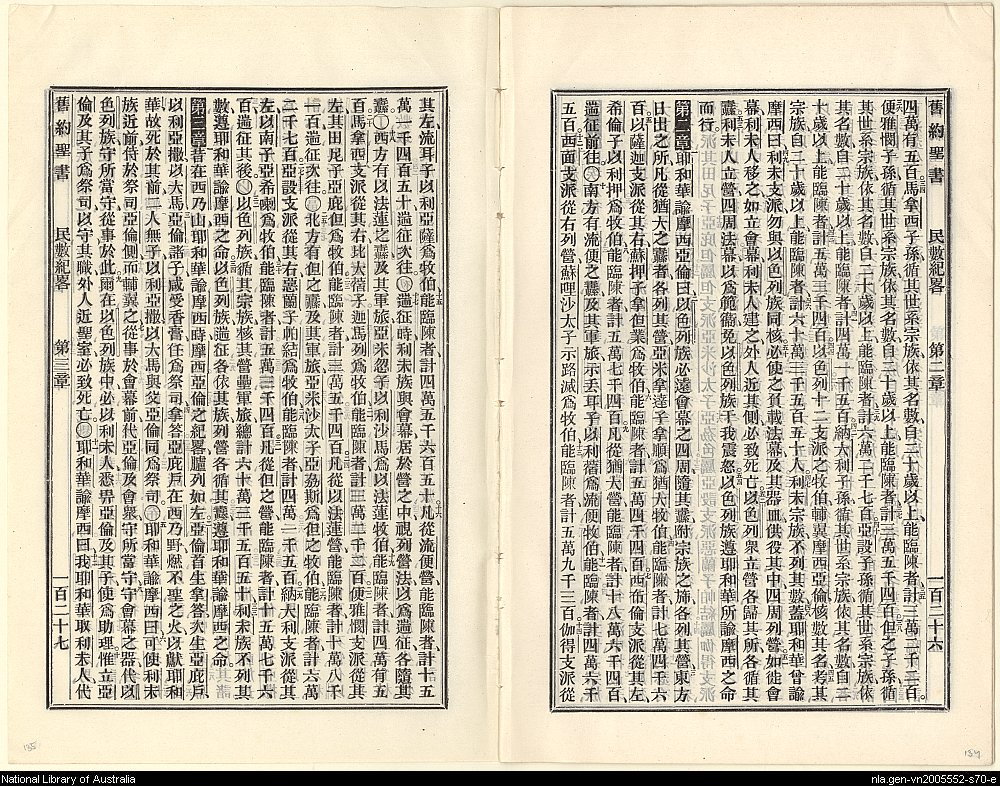 舊約聖書 民數紀畧 第二章 一百二十六
四萬有五百馬拿西子孫循其世系宗族依其名數自二十歲以上能臨陳者計三萬二千二百
便雅憫子孫循其世系宗族依其名數自二十歲以上能臨陳者計三萬五千四百但之子孫循
其世系宗族依其名數自二十歲以上能臨陳者計六萬二千七百亞設子孫循其世系宗族依
其名數自二十歲以上能臨陳者計四萬一千五百納大利子孫循其世系宗族依其名數自二
十歲以上能臨陳者計五萬三千四百以色列十二支派之牧伯輔翼摩西亞倫核數其名考其
宗族自二十歲以上能臨陳者計六十萬三千五百五十人利未宗族不列其數蓋耶和華曾諭
摩西曰利未支派勿與以色列族同核必使之負載法幕及其器皿供役其中四周列營如徙會
幕利未人移之如立會幕利未人建之外人近其側必致死亡以色列衆立營各歸其所各循其
纛利未人立營四周法幕以爲範衞免以色列族干我震怒以色列族遵耶和華所諭摩西之命
而行
第二章耶和華諭摩西亞倫曰以色列族必遠會幕之四周隨其纛附宗族之旆各列其營東方
日出之所凡從猶大之纛者各列其營亞米拿達子拿順爲猶大牧伯能臨陳者計七萬四千六
百以薩迦支派從其左蘇押子拿但業爲牧伯能臨陳者計五萬四千四百西布倫支派從其左
希倫子以利押爲牧伯能臨陳者計五萬七千四百凡從猶大營能臨陳者計十八萬六千四百
遄征於前往南方有流便之纛及其軍旅示丟耳子以利蓿爲流便牧伯能臨陳者計四萬六千
五百西面支派從右列營蘇哩沙太子示路滅爲牧伯能臨陳者計五萬九千三百伽得支派從
舊約聖書 民數紀畧 第三章 一百二十七
其左流耳子以利亞薩爲牧伯能臨陳者計四萬五千六百五十凡從流便營能臨陳者計十五
萬一千四百五十遄征次往遄征時利未族與會幕居於營之中視列營法以爲遄征各隨其
纛西方有以法蓮之纛及其軍旅亞米忽子以利沙馬爲以法蓮牧伯能臨陳者計四萬有五
百馬拿西支派從其右比大蓿子迦馬列爲牧伯能臨陳者計三萬二千二百便雅憫支派從其
左其田尼子亞庇但爲牧伯能臨陳者計三萬五千四百凡從以法蓮營能臨陳者計十萬八千
一百遄征次往北方有但之纛及其軍旅亞米沙太子亞希斯爲但之牧伯能臨陳者計六萬
二千七百亞設支派從其右惡蘭子帕結爲牧伯能臨陳者計四萬一千五百納大利支派從其
左以南子亞希喇爲牧伯能臨陳者計五萬三千四百凡從但之營能臨陳者計十五萬七千六
百遄征其後以色列族循其宗族核其營壘軍旅總計六十萬三千五百五十利未族不列其
數遵耶和華諭摩西之命以色列族遄征各依其族列營各循其纛遵耶和華諭摩西之命
第三章昔在西乃山耶和華諭摩西時摩西亞倫之紀畧臚列如左亞倫首生拿答次生亞庇戶
以利亞撒以大馬亞倫諸子咸受香膏任爲祭司拿答亞庇戶在西乃野燃不聖之火以獻耶和
華故死於其前二人無子以利亞撒以大馬與父亞倫同爲祭司耶和華諭摩西曰可使利未
族近前侍於祭司亞倫側而輔翼之從事於會幕前代亞倫及會衆守所當守守會幕之器代以
色列族守所當守從事於此爾在以色列族中必以利未人悉畀亞倫及其子使爲助理惟立亞
倫及其子爲祭司以守其職外人近聖室必致死亡耶和華諭摩西曰我耶和華取利未人代
135
134
National Library of Australia
nla.gen-vn2005552-s70-e